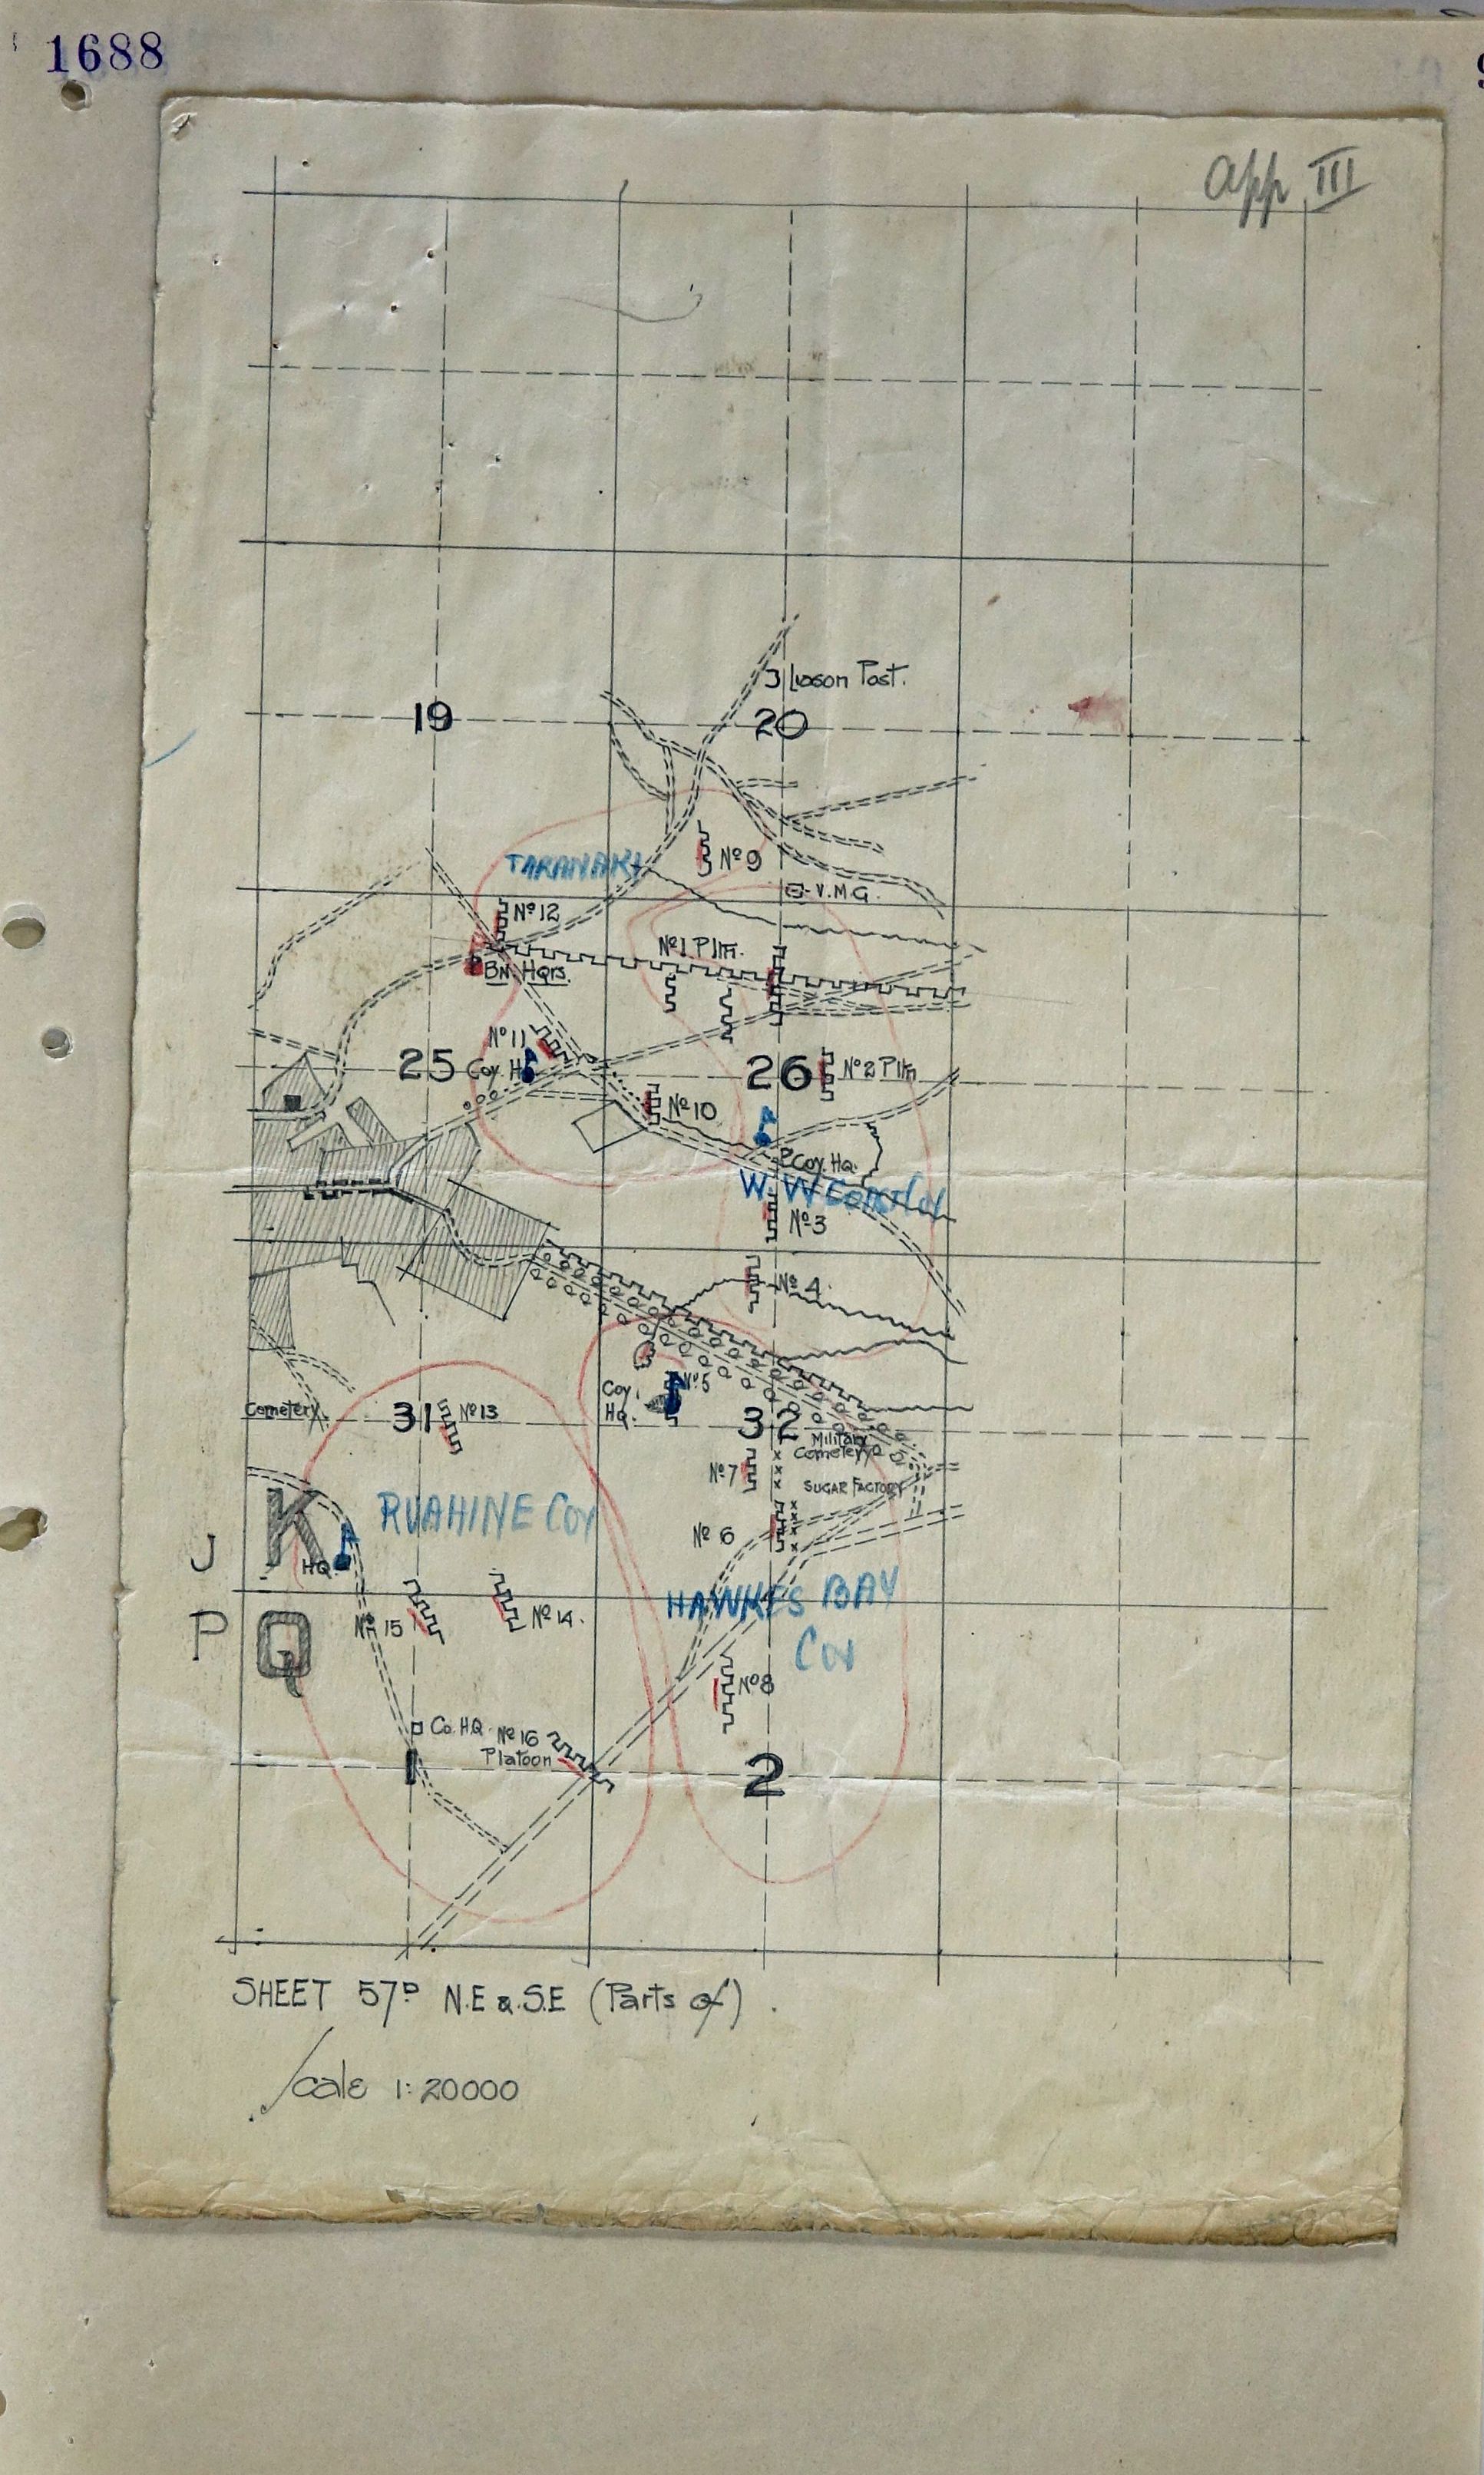 1688
app III
Liason Post.
19
20
TARANAKI
No 9
V.M.G.
No 12
No 1 Pltn.
Bn. Hqrs.
No 11
25
Coy. H
26
No 2 Pltn
No 10
Coy. Hq.
W. W
No 3
No 4
No 5
Coy.
Hq.
Cemetery.
31
No 13
32
Military
Cemetery
No 7
SUGAR FACTORY
RUAHINE COY
K
No 6
J
HQ.
HAWKES BAY
COY
P
Q
No 15
No 14.
No 8
Co. H.Q.
No 16
Platoon
1
2
SHEET 57D N.E & S.E (Parts of).
Scale 1:20000